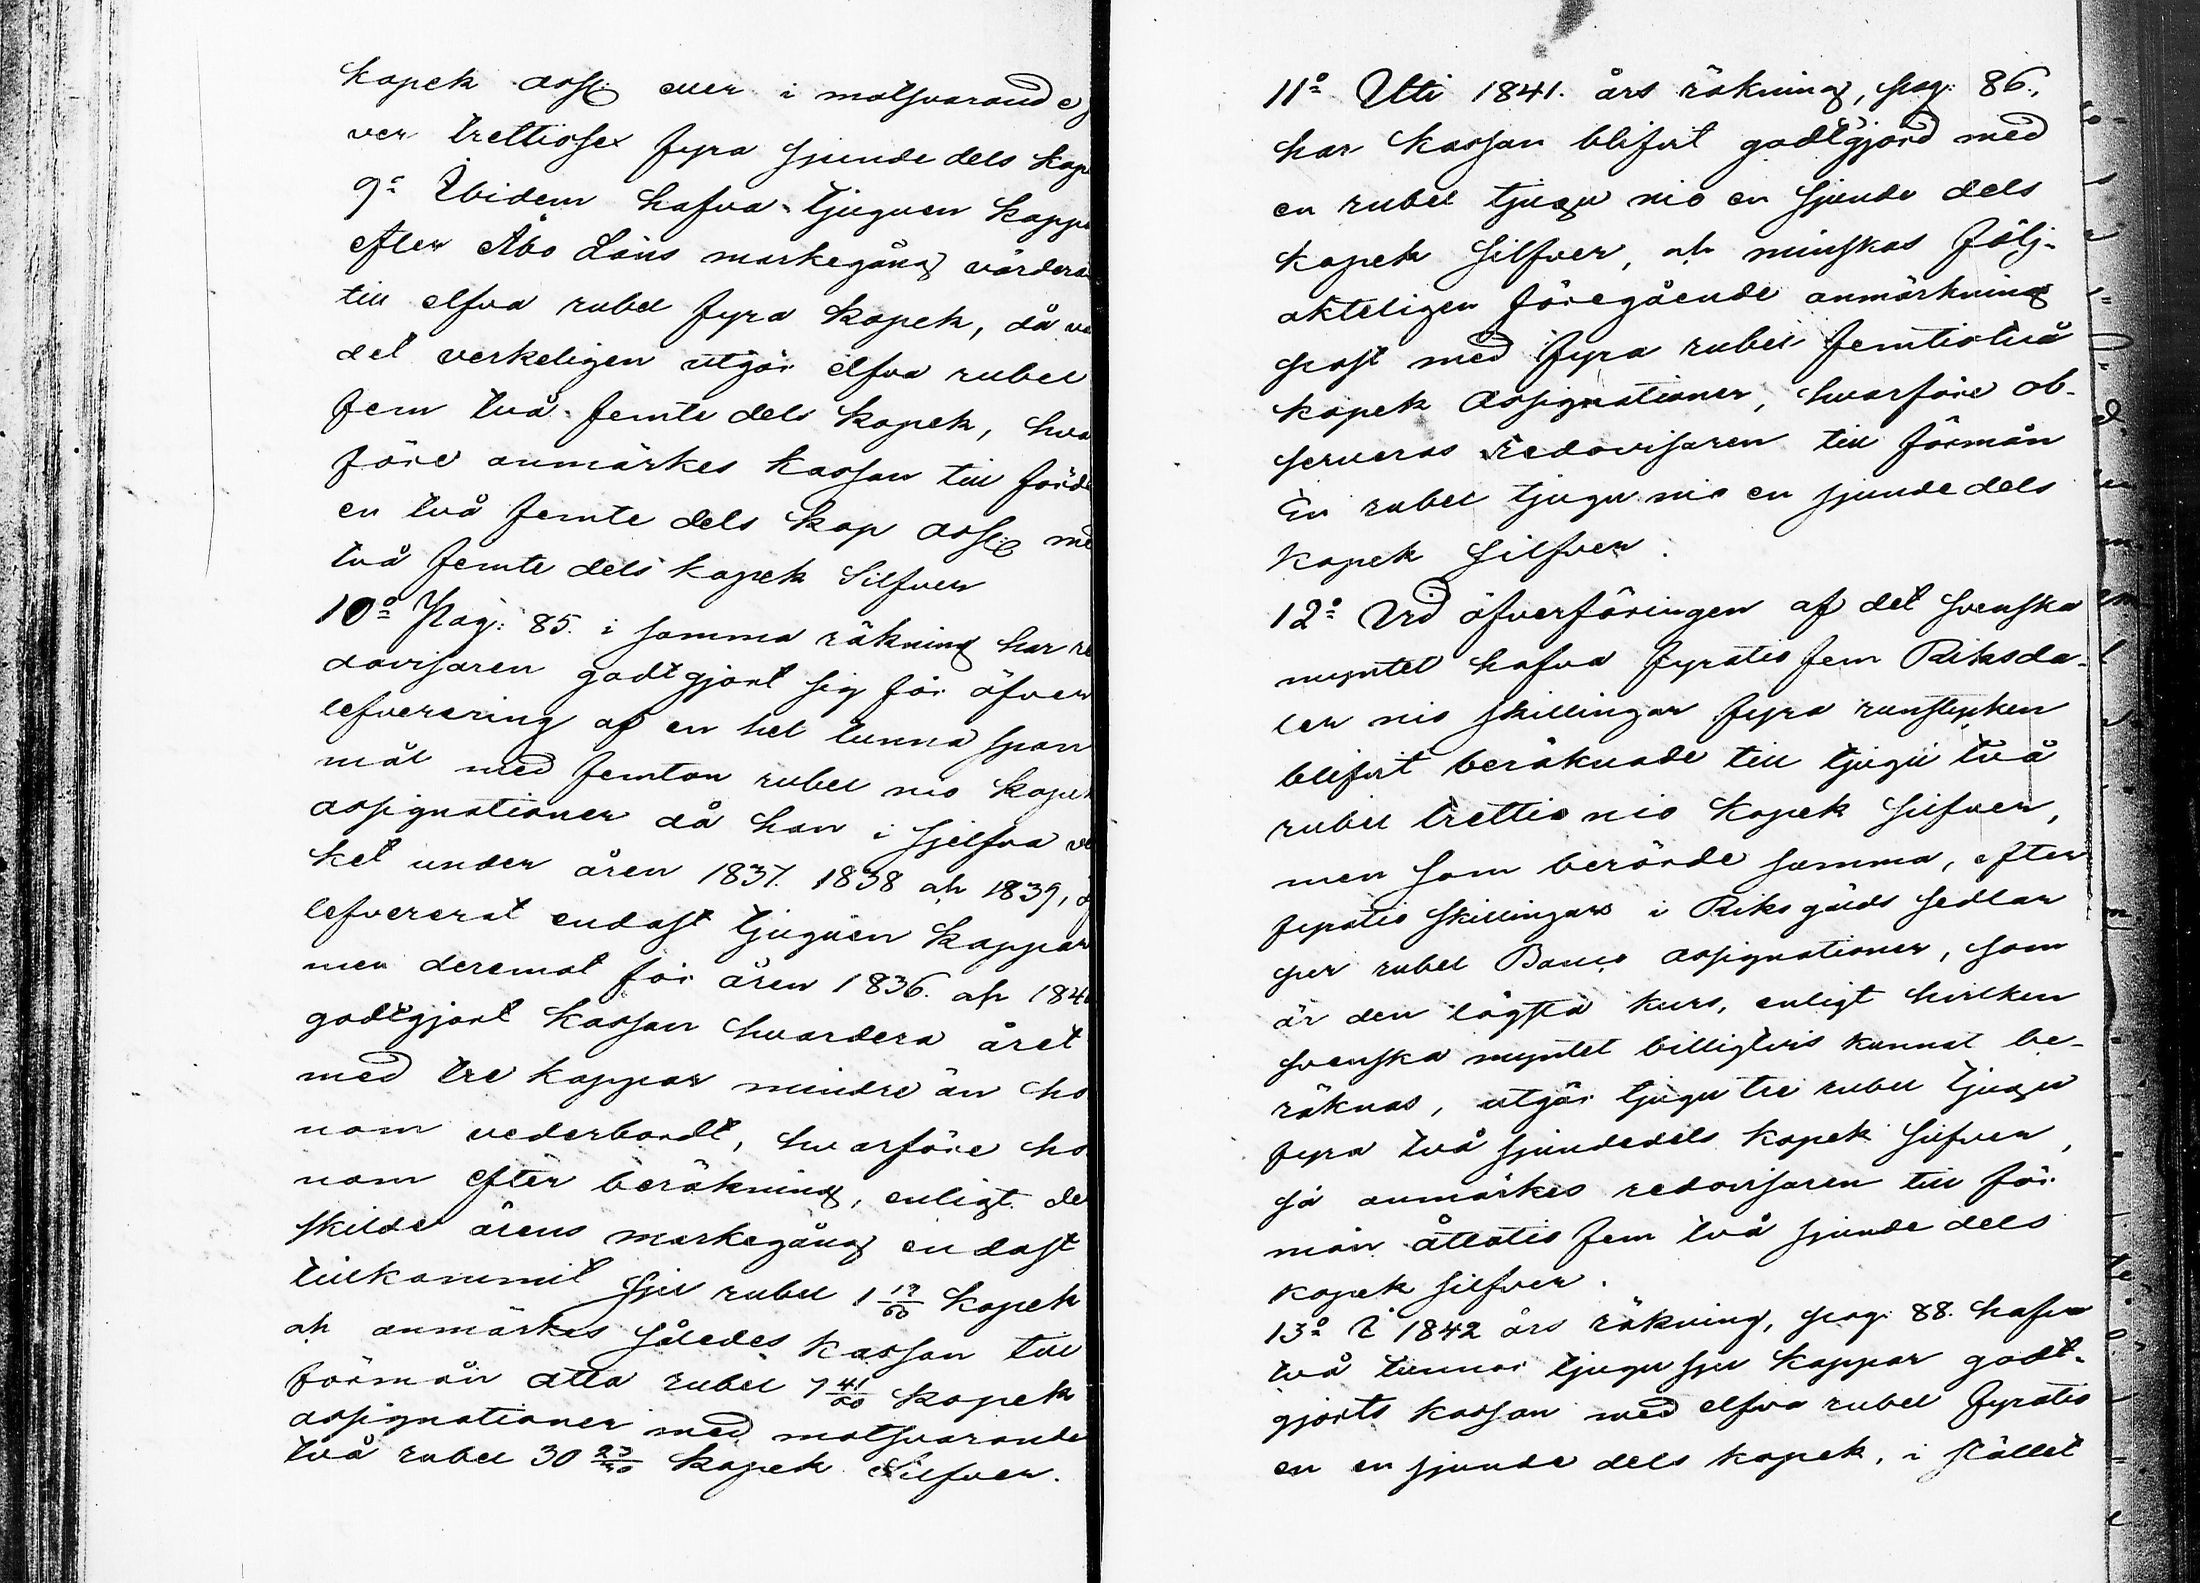 kopek assg eller i motsvarande
ver trettiosex fyra sjunde dels kope
9:o Ibidem hafva tjuguen kappa
efter Åbo Läns markegång värdera
till elfva rubel fyra kopek, då
det verkeligen utgör elfva rubel
fem två femte dels kopek, hva
före anmärkes kassan till förde
en två femte dels kop assg me
två femte dels kopek Silfver
10:o Pag: 85. i samma räkning har re
dovisaren godtgjort sig för öfver
lefverering af en hel tunna span
mål med femton rubel nio kopek
assignationer då han i sjelfva ve
ket under åren 1837. 1838 och 1839,
lefvererat endast tjuguen kappar
men deremot för åren 1836. och 184
godtgjort kassan hvardera året
med tre kappar mindre än ho
nom vederbordt, hvarföre ho
nom efter beräkning, enligt de
skilde årens markegång endast
tillkommit sju rubel 1 19/60 kopek
och anmärkes således kassan till
förmån åtta rubel 7 41/60 kopek
assignationer med motsvarande
två rubel 30 kopek Silfver.
11:o Uti 1841. års räkning, pag: 86.,
har kassan blifvit godtgjord med
en rubel tjugu nio en sjunde dels
kopek Silfver, och minskas följ-
akteligen föregående anmärknings
post med fyra rubel femtiotvå
kopek Assignationer, hvarföre ob-
serveras redovisaren till förmån
En rubel tjugu nio en sjunde dels
kopek Silfver.
12:o Vid öfverföringen af det svenska
myntet hafva fyratio fem Riksda-
ler nio skillingar fyra runstycken
blifvit beräknade till tjugu två
rubel trettio nio kopek Silfver,
men som berörde summa, efter
fyratio skillingar i Riksgälds sedlar
per rubel Banco assignationer, som
är den lägsta kurs, enligt hvilken
svenska myntet billigtvis kunnat be-
räknas, utgör tjugu tre rubel tjugu
fyra två sjundedels kopek Silfver,
så anmärkes redovisaren till för
mån åttatio fem två sjunde dels
kopek Silfver.
13:o I 1842 års räkning, pag: 88. hafva
två tunnor tjugu sju kappar godt-
gjorts kassan med elfva rubel fyratio
en en sjunde dels kopek, i stället